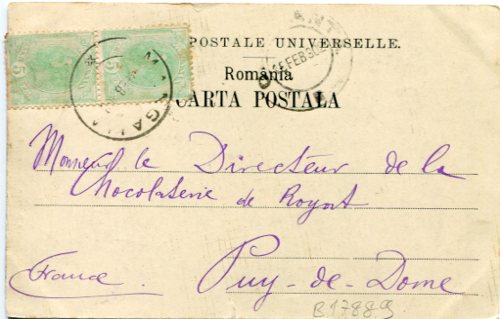 POSTALE UNIVERSELLE.
România
CARTA POSTALA
MANGALIA
FEB 902
5 5
Monsieur le Directeur de la
Chocolaterie de Royat
Puy-de-Dome
France
B17889